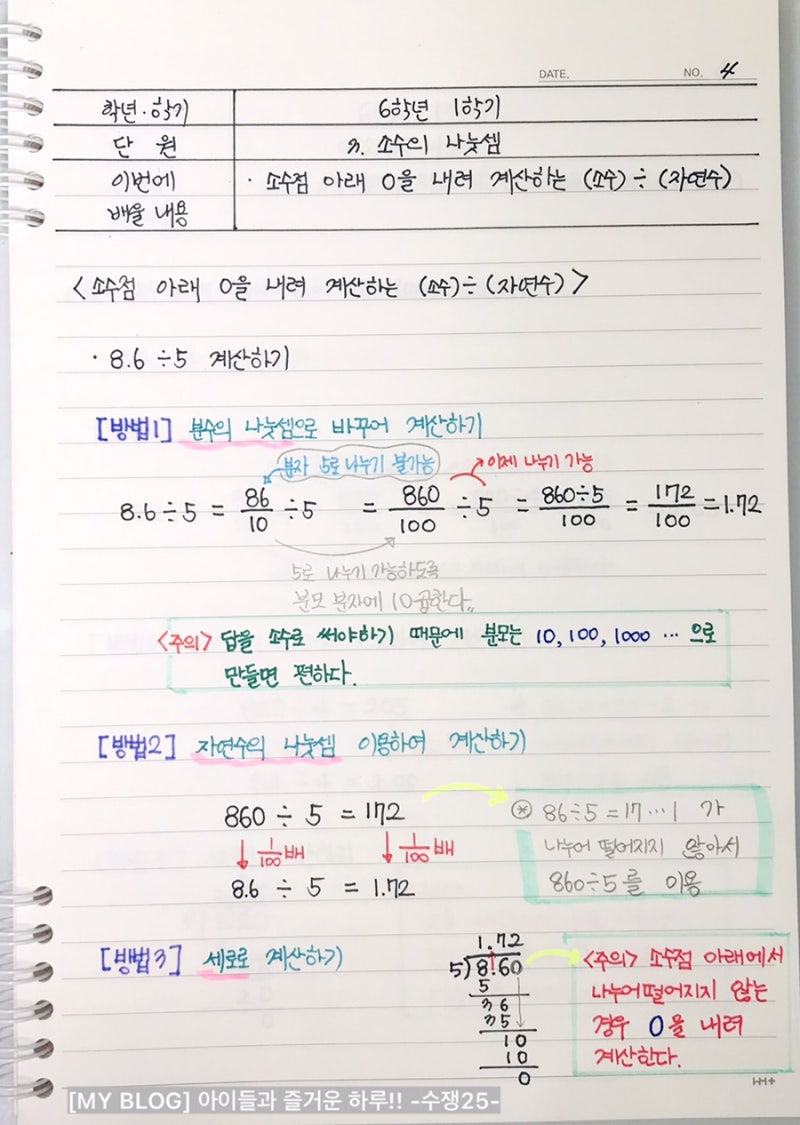 DATE. NO. 4
학년·학기 6학년 1학기
단 원 3. 소수의 나눗셈
이번에 배울 내용 · 소수점 아래 0을 내려 계산하는 (소수)÷(자연수)
<소수점 아래 0을 내려 계산하는 (소수)÷(자연수)>
· 8.6÷5 계산하기
[방법1] 분수의 나눗셈으로 바꾸어 계산하기
분자 5로 나누기 불가능 이제 나누기 가능
8.6÷5 = 86/10 ÷5 = 860/100 ÷5 = 860÷5/100 = 172/100 = 1.72
5로 나누기 가능하도록
분모 분자에 10곱한다.
<주의> 답을 소수로 써야하기 때문에 분모는 10, 100, 1000 … 으로
만들면 편하다.
[방법2] 자연수의 나눗셈 이용하여 계산하기
860 ÷ 5 = 172
↓ 1/100배 ↓ 1/100배
8.6 ÷ 5 = 1.72
※ 86÷5=17…1 가
나누어 떨어지지 않아서
860÷5를 이용
[방법3] 세로로 계산하기
1.72
5)8.60
5
36
35
10
10
0
<주의> 소수점 아래에서
나누어떨어지지 않는
경우 0을 내려
계산한다.
[MY BLOG] 아이들과 즐거운 하루!! -수쟁25-